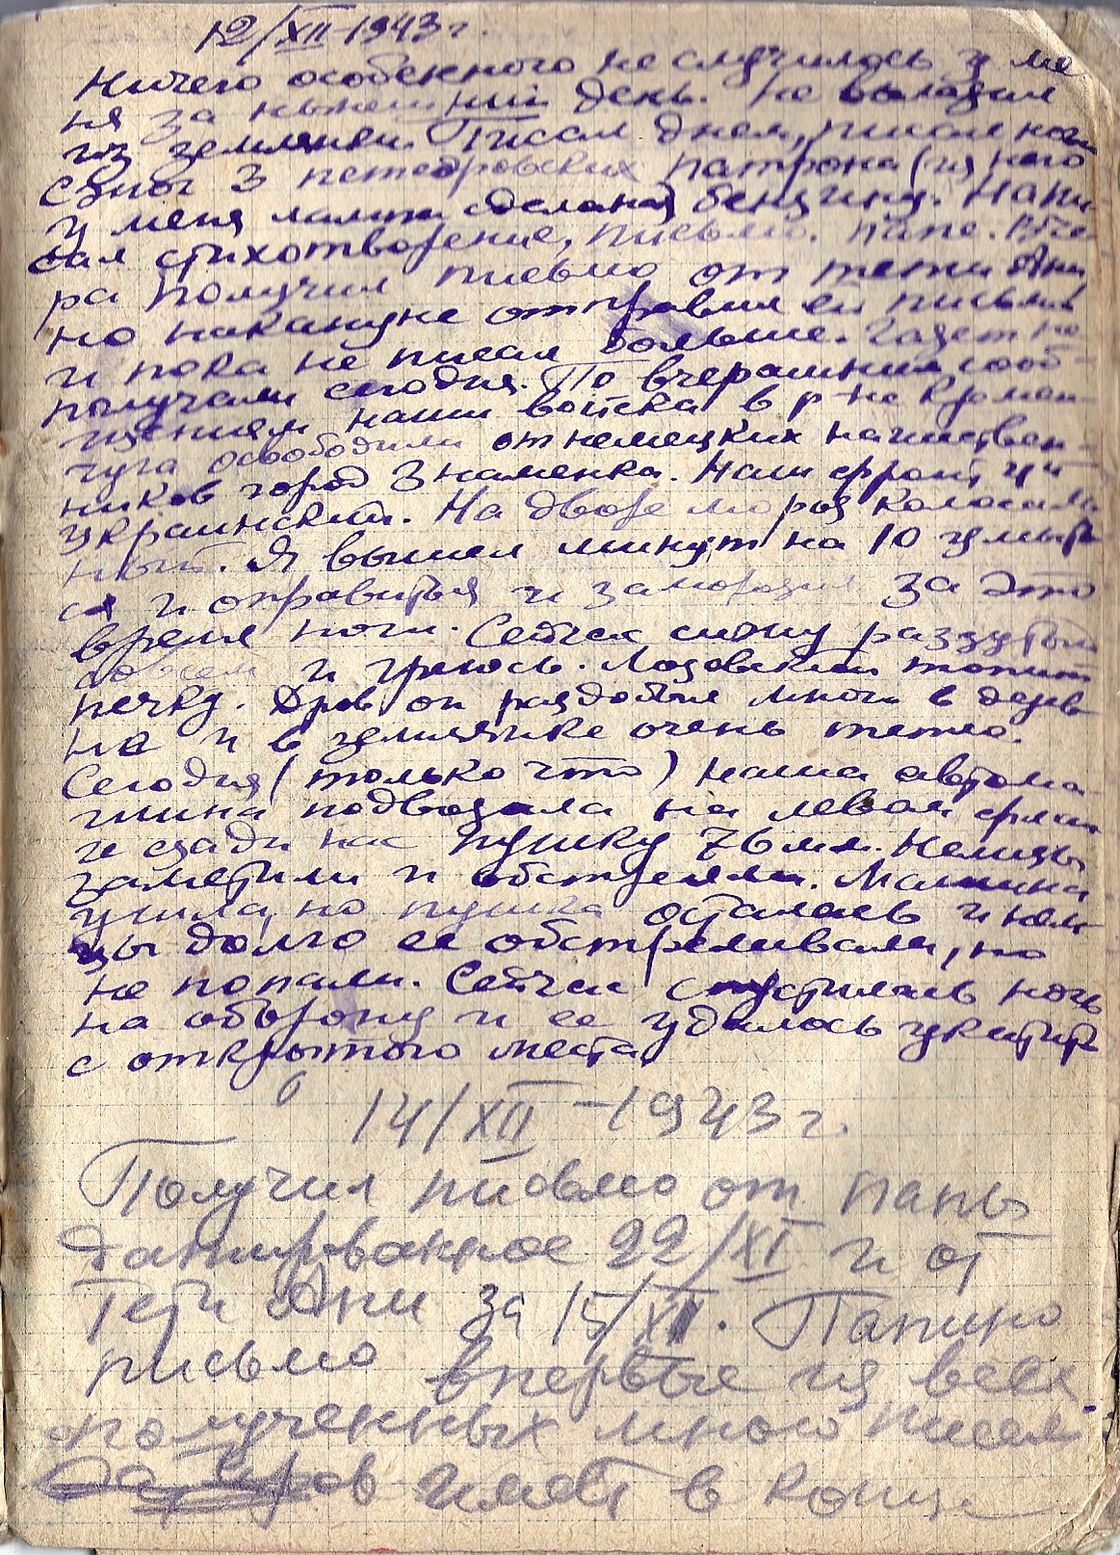 12/XII-1943 г.
Ничего особенного не случилось у ме-
ня за нынешний день. Не вылазил
из землянки. Писал днем, писал
3 петеэровских патрона (из него
у меня лампа сделана) бензину. Напи
сал стихотворение, письмо папе. Вче-
ра получил письмо от тети Ани
но накануне отправил ей письмо
и пока не писал больше. Газет не
получали сегодня. По вчерашним сооб-
щениям наши войска в р-не Кремен-
чуга освободили от немецких нашествен-
ников город Знаменка. Наш фронт 4й
украинский. На дворе мороз колоссаль
ный. Я вышел минут на 10 умыть
ся и оправиться и заморозил за это
время ноги. Сейчас сижу разутый
совсем и греюсь. Лозовский топит
печку. Дров он раздобыл много в
и в землянке очень тепло.
Сегодня (только что) наша автома-
шина подвозила на левом фланге
и сзади нас пушку 76 мм. Немцы
заметили и обстреляли. Машина
ушла, но пушка осталась и нем-
цы долго ее обстреливали, но
не попали. Сейчас спустилась ночь
на оборону и ее удалось укатить
с открытого места.
14/XII-1943 г.
Получил письмо от папы
датированное 22/XI и от
Тети Ани за 15/XI. Папино
письмо впервые из всех
полученных мною писем
имеет в конце